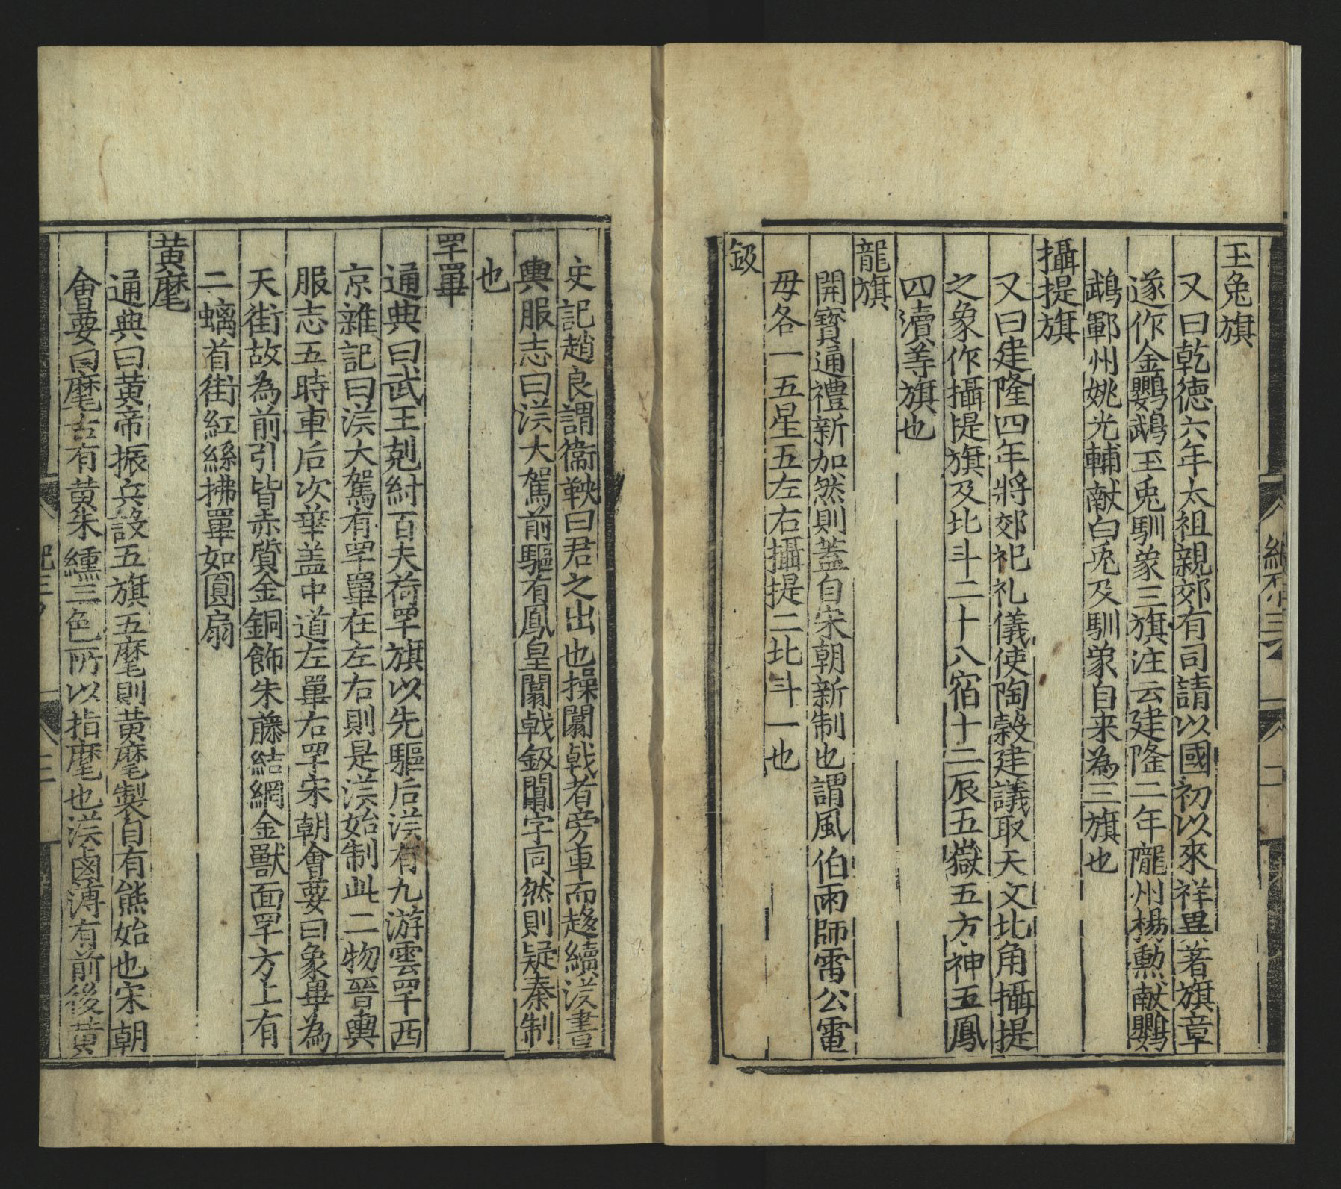 玉兔旗
又曰乾德六年太祖親郊有司請以國初以來祥異著旗章
遂作金鸚鵡玉兎馴象三旗注云建隆二年隴州楊勲献鸚
鵡鄆州姚光輔献白兎及馴象自来為三旗也
攝提旗
又曰建隆四年將郊祀礼儀使陶穀建議取天文北角攝提
之象作攝提旗及北斗二十八宿十二辰五嶽五方神五鳳
四瀆等旗也
龍旗
開寳通禮新加然則蓋自宋朝新制也謂風伯雨師雷公電
毋各一五星五左右攝提二北斗一也
鈒
史記趙良謂衞鞅曰君之出也操闟戟者旁車而趍續漢書
輿服志曰漢大駕前驅有鳳皇闟戟鈒闟字同然則疑秦制
也
罕罼
通典曰武王剋紂百夫荷罕旗以先驅后漢有九游雲罕西
京雜記曰漢大駕有罕罼在左右則是漢始制此二物晉輿
服志五時車后次華盖中道左罼右罕宋朝會要曰象畢為
天街故為前引皆赤質金銅飾朱藤結網金獸面罕方上有
二螭首街紅絲拂罼如圎扇
黄麾
通典曰黄帝振兵設五旗五麾則黄麾製自有熊始也宋朝
會要曰麾古有黄朱纁三色所以指麾也漢鹵薄有前後黄